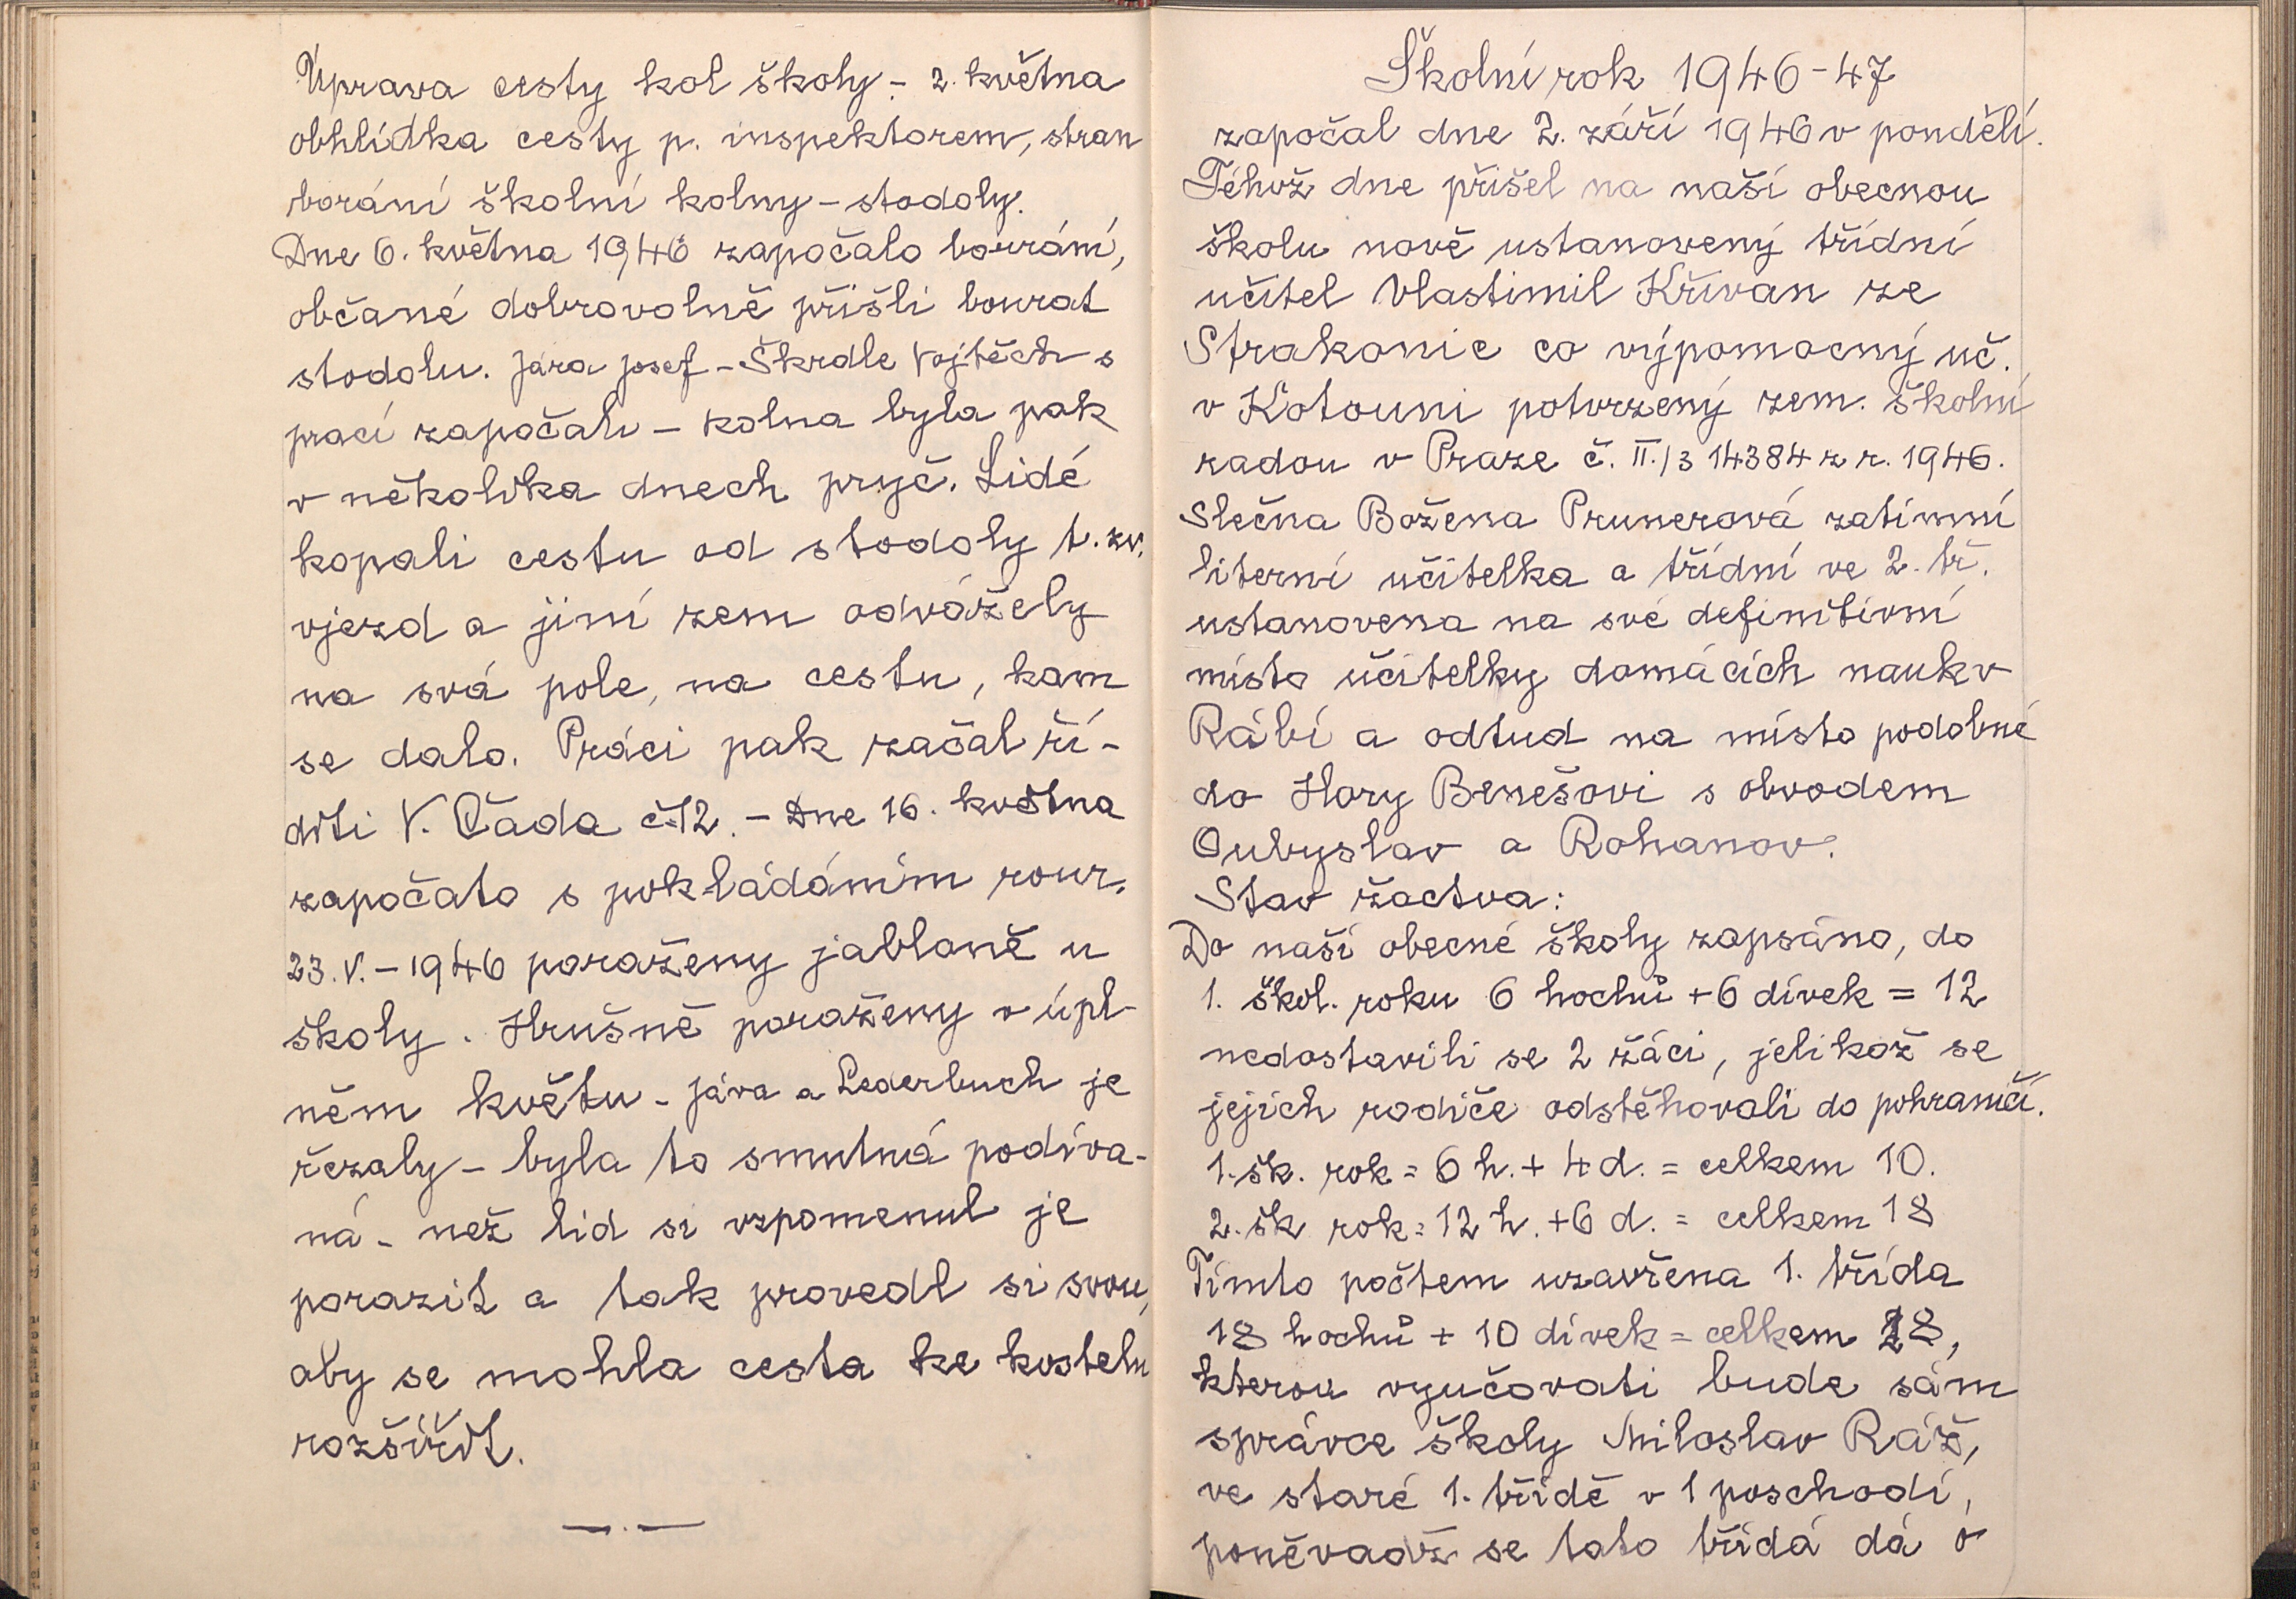 Úprava cesty kol školy - 2. května
obhlídka cesty p. inspektorem, stran
borání školní kolny - stodoly.
Dne 6. května 1946 započalo bourání,
občané dobrovolně přišli bourat
stodolu. Jára Josef - Škrdle Vojtěch s
prací započali - kolna byla pak
v několika dnech pryč. Lidé
kopali cestu od stodoly t. zv.
vjezd a jiní zem odvážely
na svá pole, na cestu, kam
se dalo. Práci pak začal ří-
diti V. Čada č 12. - Dne 16. května
započato s pokládáním rour.
23. V. - 1946 poraženy jabloně u
školy. Hrušně poraženy v úpl-
něm květu - Jára a Lederbuch je
řezaly - byla to smutná podíva-
ná - než lid si vzpomenul je
porazit a tak provedl si svou,
aby se mohla cesta ke kostelu
rozšířit.
Školní rok 1946-47
započal dne 2. září 1946 v pondělí.
Téhož dne přišel na naší obecnou
školu nově ustanovený třídní
učitel Vlastimil Křivan ze
Strakonic co výpomocný uč.
v Kotouni potvrzený zem. školní
radou v Praze č. II./3 14384 z r. 1946.
Slečna Božena Prunerová zatimní
literní učitelka a třídní ve 2. tř.
ustanovena na své definitivní
místo učitelky domácích nauk v
Rábí a odtud na místo podobné
do Hory Benešovi s obvodem
Oubyslav a Rohanov.
Stav žactva:
Do naší obecné školy zapsáno, do
1. škol. roku 6 hochů + 6 dívek = 12
nedostavili se 2 žáci, jelikož se
jejich rodiče odstěhovali do pohraničí.
1. šk. rok = 6 h. + 4 d. = celkem 10.
2. šk rok = 12 h. + 6 d. = celkem 18
Tímto počtem uzavřena 1. třída
18 hochů + 10 dívek = celkem 28,
kterou vyučovati bude sám
správce školy Miloslav Ráž,
ve staré 1. třídě v 1 poschodí,
poněvadž se tato třídá dá